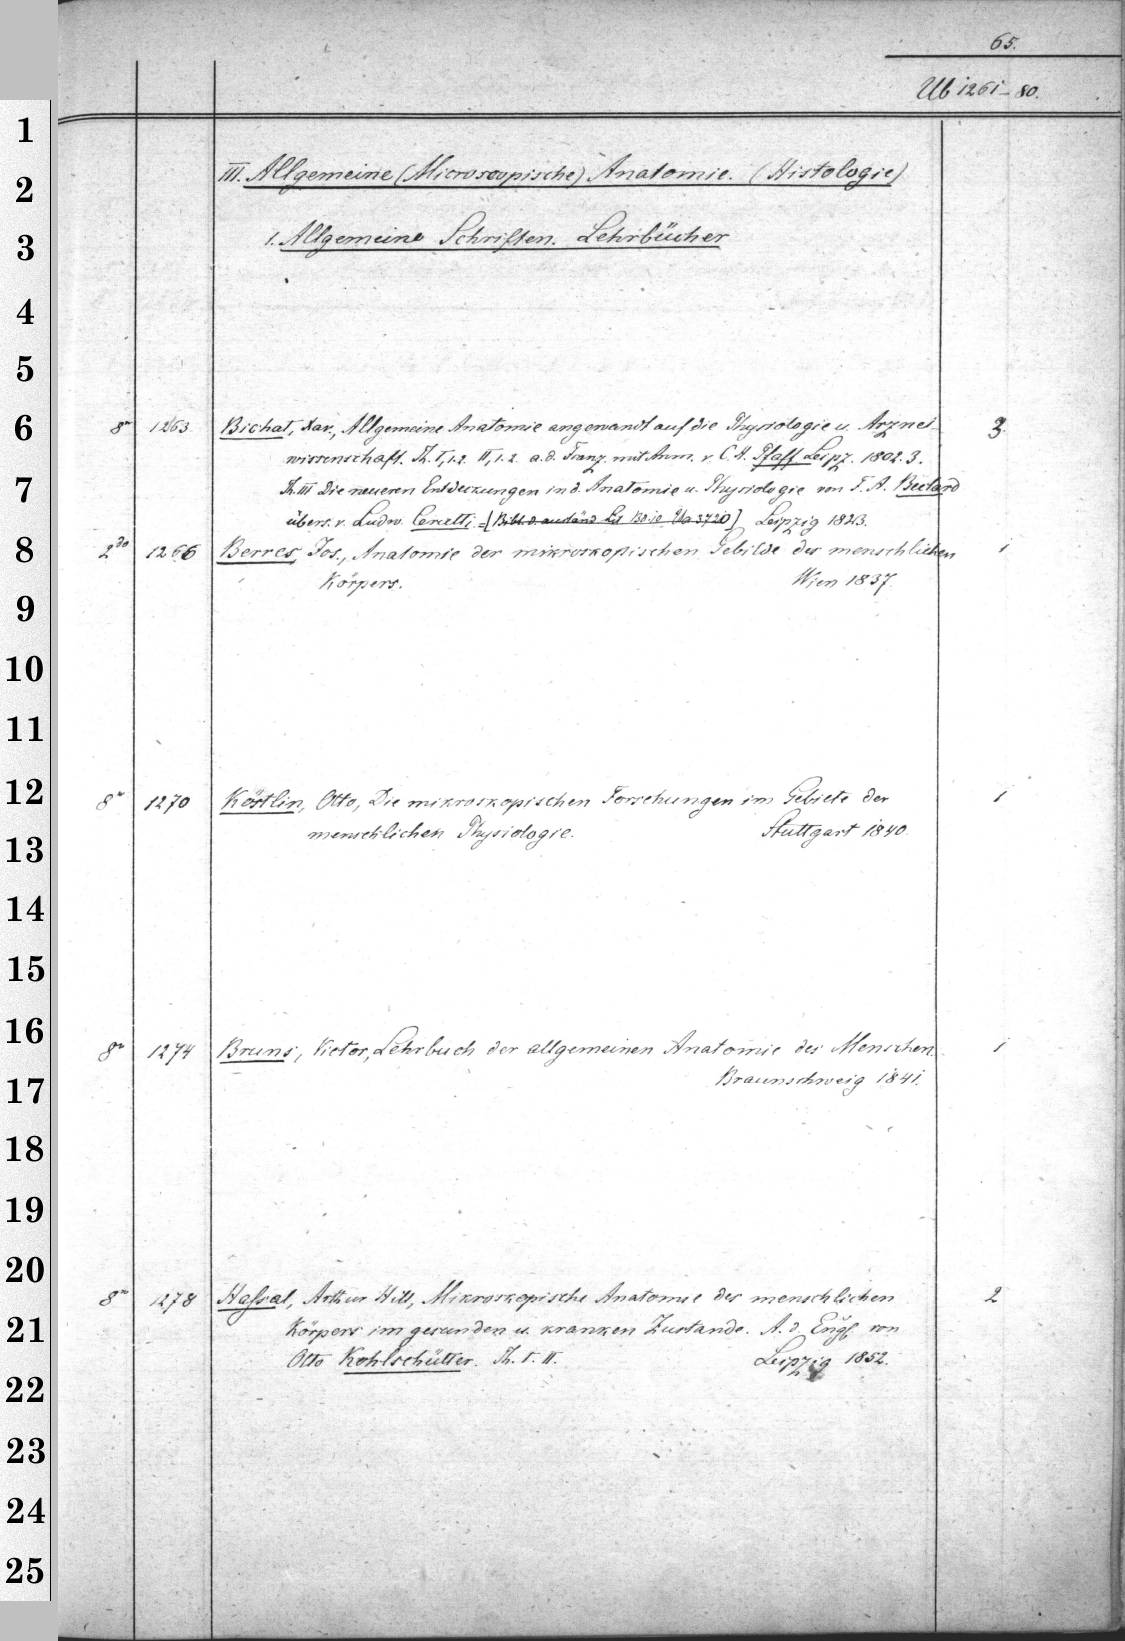 65.
Ub 1261-80.
III. Allgemeine (Microscopische) Anatomie. (Histologie)
1. Allgemeine Schriften. Lehrbücher
8° 1263. Bichat, Xav., Allgemeine Anatomie angewandt auf die Physiologie u. Arznei- 3.
wissenschaft. Th. I,1.2. II,1.2. a.d. Franz. mit Anm. v. C.H. Pfaff Leipz. 1802.3.
Th. III Die neueren Entdeckungen in d. Anatomie u. Physiologie von P. A. Béclard
übers. v. Ludw. Cerutti. [Bibl. d. ausländ Lit Bd. 10 Ub 3720] Leipzig 1823.
2do 1266 Berres, Jos., Anatomie der mikroskopischen Gebilde des menschlichen 1
Körpers. Wien 1837.
8° 1270 Köstlin, Otto, Die mikroskopischen Forschungen im Gebiete der 1
menschlichen Physiologie. Stuttgart 1840.
8° 1274 Bruns, Victor, Lehrbuch der allgemeinen Anatomie des Menschen. 1
Braunschweig 1841.
8° 1278 Haſsal, Arthur Hill, Mikroskopische Anatomie des menschlichen 2
Körpers im gesunden u. kranken Zustande. A. d. Engl. von
Otto Kohlschütter. Th. I. II. Leipzig 1852.
1
2
3
4
5
6
7
8
9
10
11
12
13
14
15
16
17
18
19
20
21
22
23
24
25